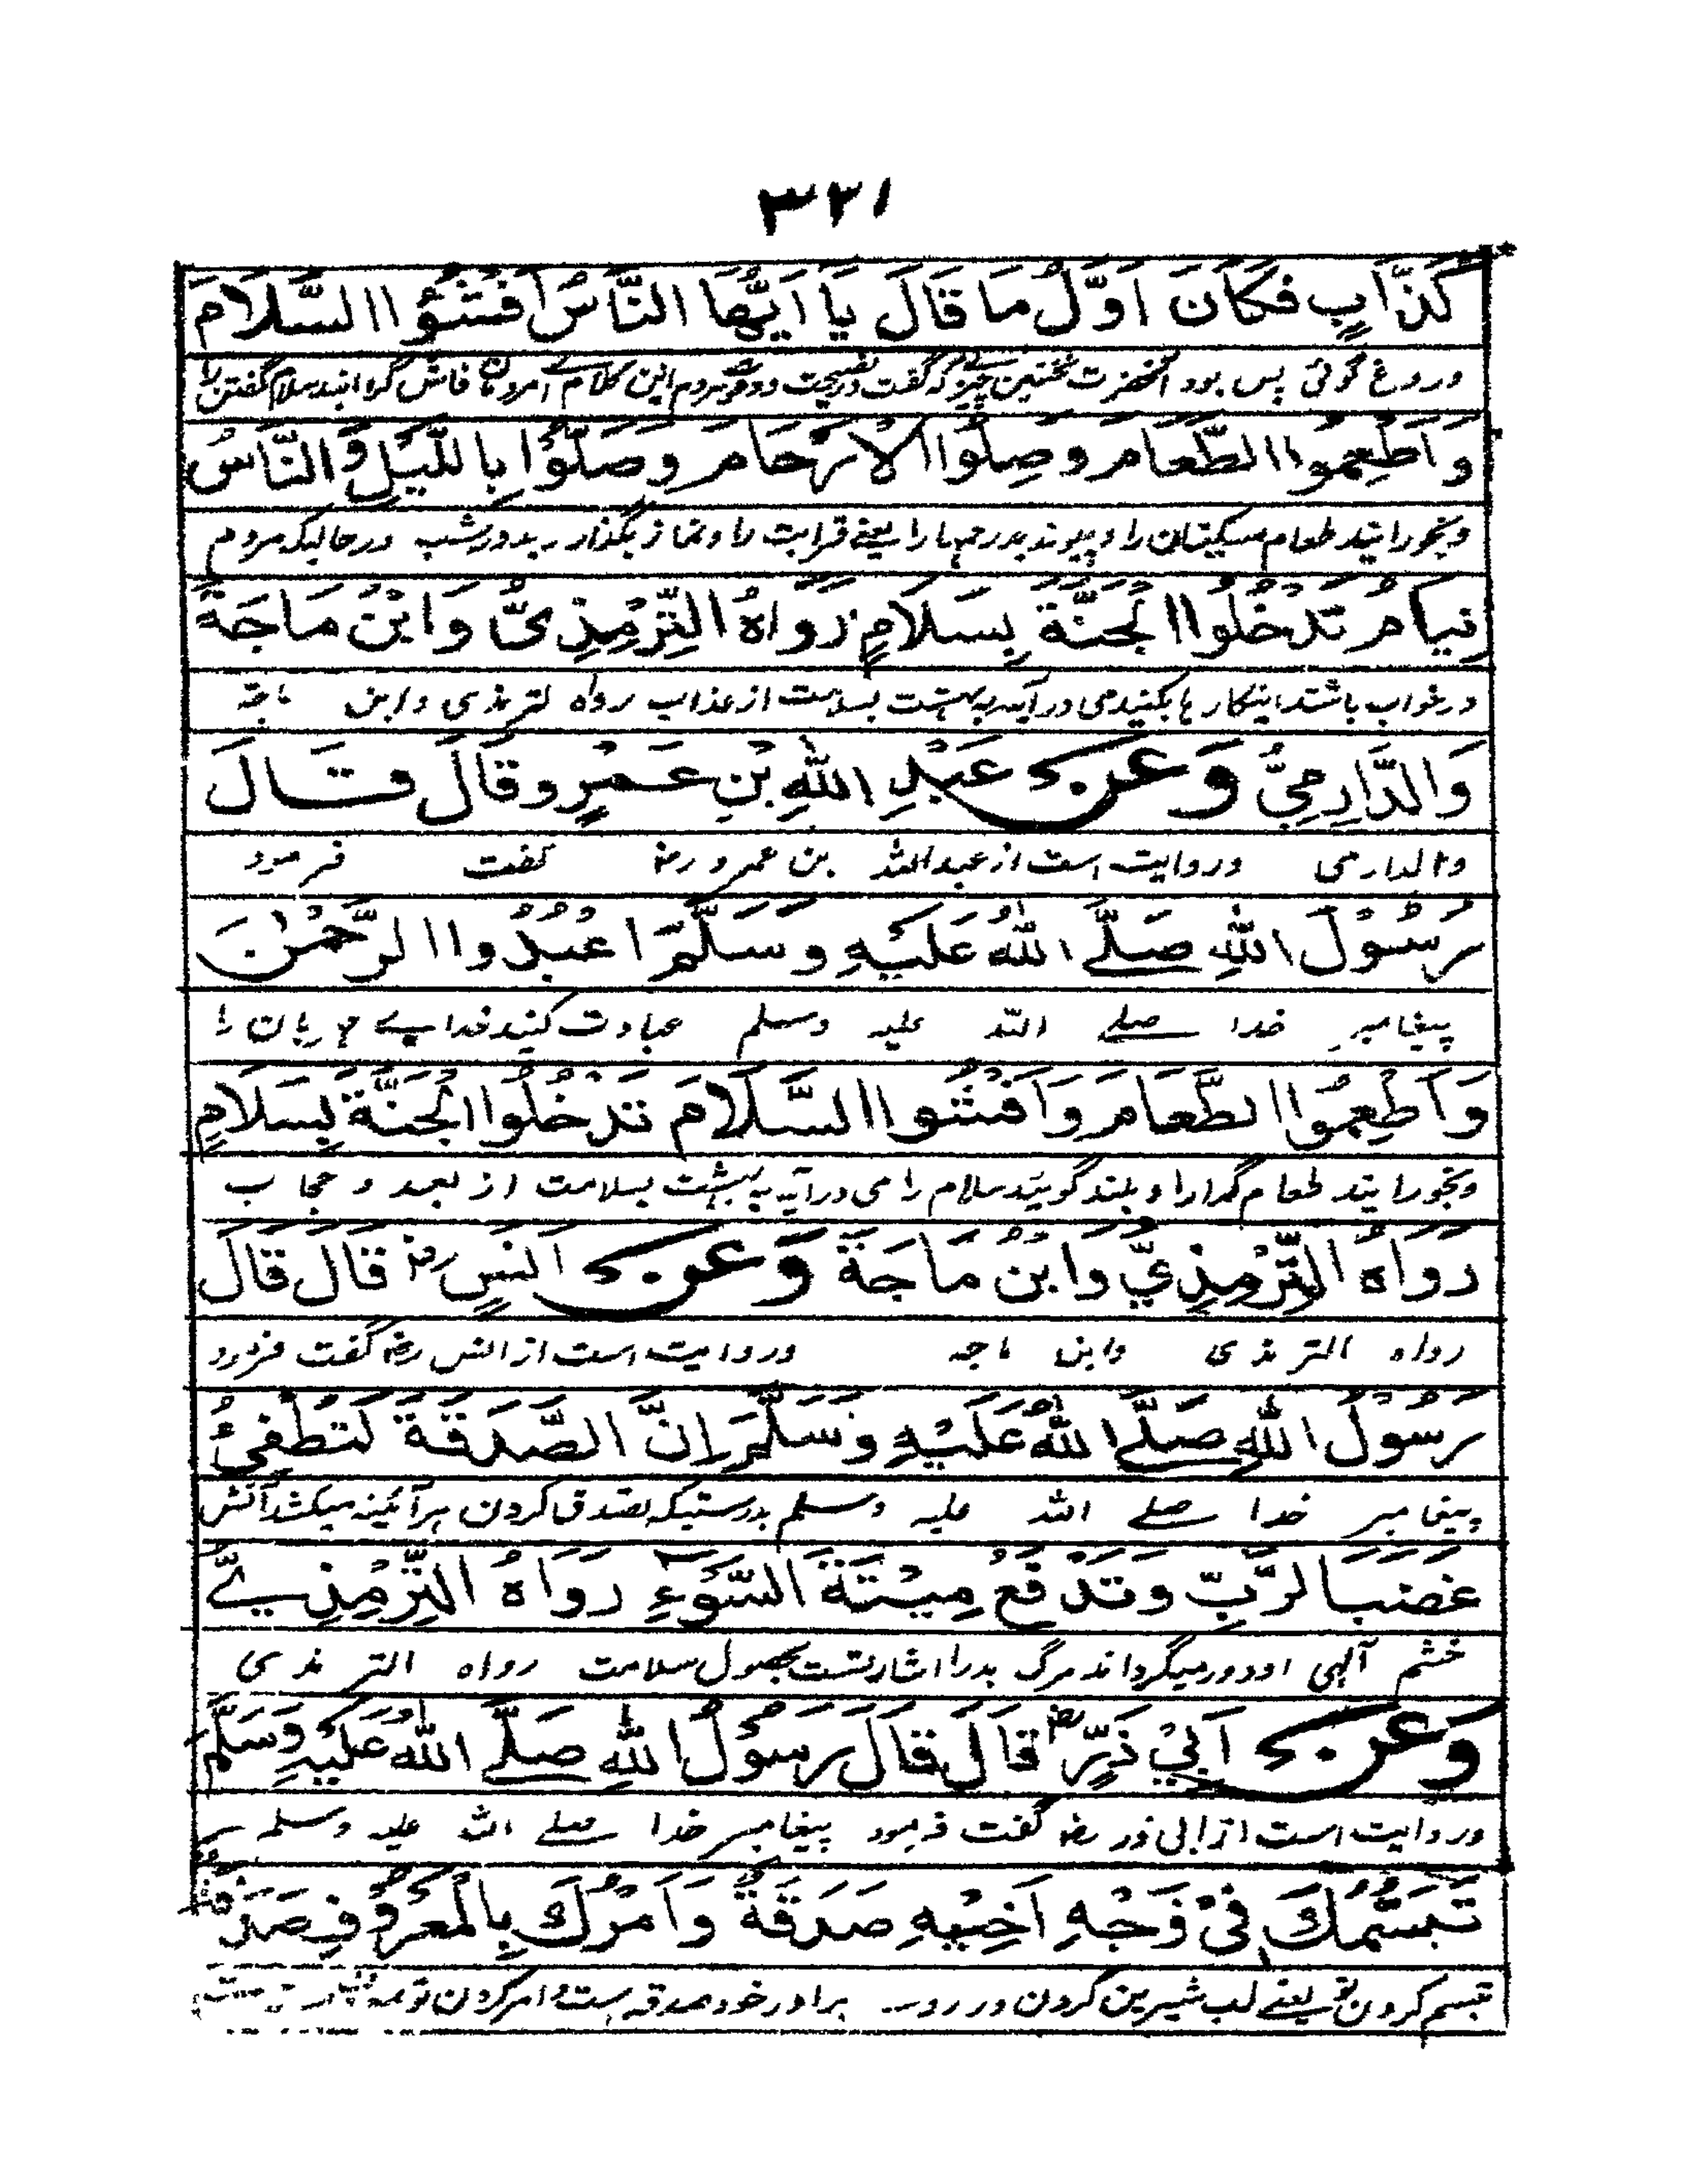 ۳۲۱
كَذَّابٍ فَكَانَ اَوَّلُ مَا قَالَ يَا اَيُّهَا النَّاسُ اَفْشُوا السَّلَامَ
دروغ گوئی پس بود آنحضرت نخستین چیزی که گفت این کلام اے مردمان فاش گردانید سلام گفتن را
وَاَطْعِمُوا الطَّعَامَ وَصِلُوا الْاَرْحَامَ وَصَلُّوْا بِاللَّيْلِ وَالنَّاسُ
و بخورانید طعام مسکینان را و پیوند بدرحمها را یعنے قرابت را و نماز بگذارید در شب در حالیکه مردم
نِيَامٌ تَدْخُلُوا الْجَنَّةَ بِسَلَامٍ رَوَاهُ التِّرْمِذِىُّ وَابْنُ مَاجَةَ
در خواب باشند اینکار ها بکنید می درآیید به بهشت بسلامت از عذاب رواه الترمذی وابن ماجة
وَالدَّارِمِيُّ وَعَنْ عَبْدِ اللهِ بْنِ عَمْرٍو قَالَ قَالَ
والدارمی وروایت است از عبدالله بن عمرو رضہ گفت فرمود
رَسُوْلُ اللهِ صَلَّے اللهُ عَلَيْهِ وَسَلَّمَ اعْبُدُوا الرَّحْمٰنَ
پیغامبر خدا صلے الله علیه وسلم عبادت کنید خداے مهربان را
وَاَطْعِمُوا الطَّعَامَ وَاَفْشُوا السَّلَامَ تَدْخُلُوا الْجَنَّةَ بِسَلَامٍ
و بخورانید طعام گدا را و بلند گویید سلام را می درآیید به بهشت بسلامت از بعد و حجاب
رَوَاهُ التِّرْمِذِيُّ وَابْنُ مَاجَةَ وَعَنْ اَنَسٍ رضہ قَالَ قَالَ
رواه الترمذی وابن ماجه وروایت است از انس رضہ گفت فرمود
رَسُوْلُ اللهِ صَلَّے اللهُ عَلَيْهِ وَسَلَّمَ اِنَّ الصَّدَقَةَ لَتُطْفِئُ
پیغامبر خدا صلے الله علیه وسلم بدرستیکه تصدق کردن هرآئینه میکشد آتش
غَضَبَ الرَّبِّ وَتَدْفَعُ مِيْتَةَ السُّوْءِ رَوَاهُ التِّرْمِذِيُّ
خشم آلهی او دور میگرداند مرگ بد را اشارتست بحصول سلامت رواه الترمذی
وَعَنْ اَبِيْ ذَرٍّ رضہ قَالَ قَالَ رَسُوْلُ اللهِ صَلَّے اللهُ عَلَيْهِ وَسَلَّمَ
وروایت است از ابی ذر رضہ گفت فرمود پیغامبر خدا صلے الله علیه وسلم
تَبَسُّمُكَ فِيْ وَجْهِ اَخِيْهِ صَدَقَةٌ وَاَمْرُكَ بِالْمَعْرُوْفِ صَدَقَةٌ
تبسم کردن تو یعنے لب شیرین کردن در روے برادر خود صدقه است و امر کردن تو